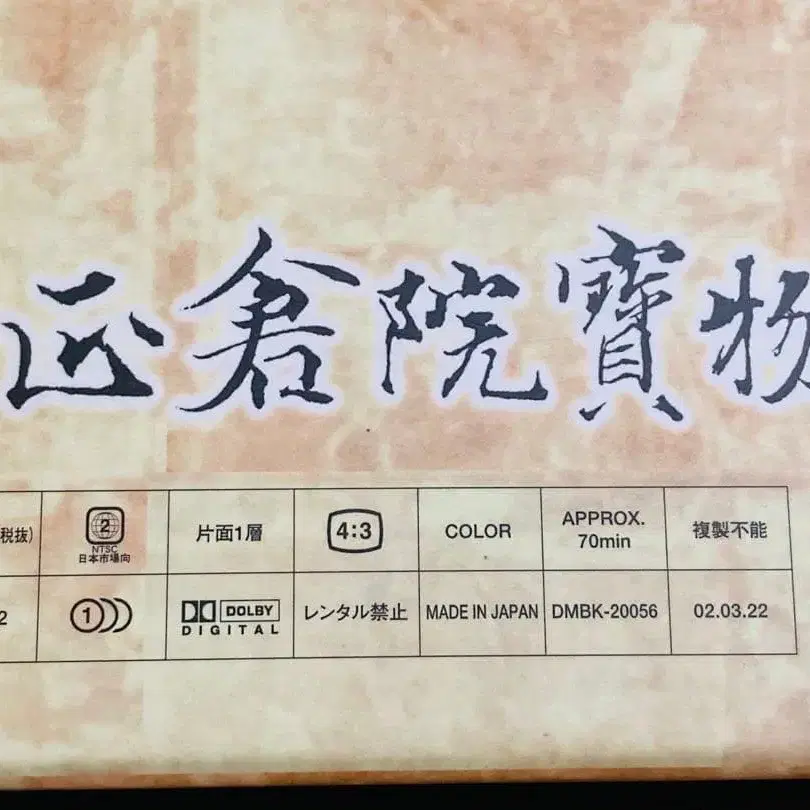 正倉院寳物
税抜)
2
NTSC
日本市場向
片面1層
4:3
COLOR
APPROX.
70min
複製不能
2
1
DOLBY
DIGITAL
レンタル禁止
MADE IN JAPAN
DMBK-20056
02.03.22